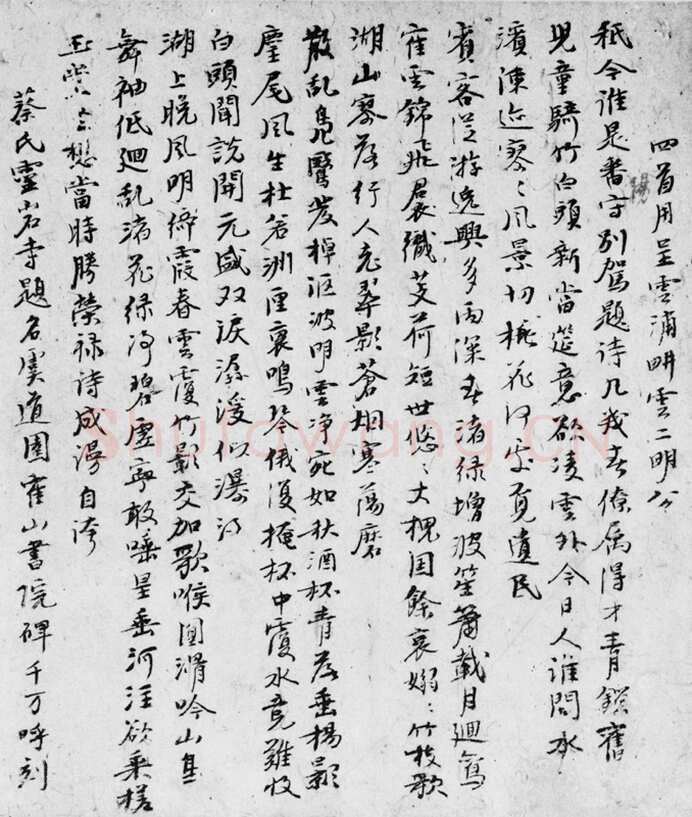 四首用呈雲浦畊雲二明公
秪今誰是番陽守別駕題詩几春僚属得才青鎖舊
兒童騎竹白頭新當筵意欲凌雲外今日人誰問水
濱陳迹寥〻風景切梅花何處覓遺民
賓客從游逸興多雨深春渚緑增波笙簫載月迴鴛
寉雲錦飛裊織芰荷短世悠〻大槐国餘哀嫋〻竹枝歌
湖山寥落行人老翠影蒼烟寒蕩磨
散乱鳧鷖發棹漚波明雲净宛如秋酒杯青落垂楊影
麈尾風生杜若洲匣裏鳴琴俄復掩杯中覆水竟難收
白頭聞說開元盛双淚潺湲似瀑流
湖上晚風明綺霞春雲覆竹影交加歌喉圓滑吟山鳥
舞袖低迴乱渚花緑净碧虛寧敢唾星垂河注欲乗槎
玉堂想當時勝榮禄詩成漫自誇
蔡氏靈岩寺題名虞道園寉山書院碑千万呼刻
Shufawang.CN